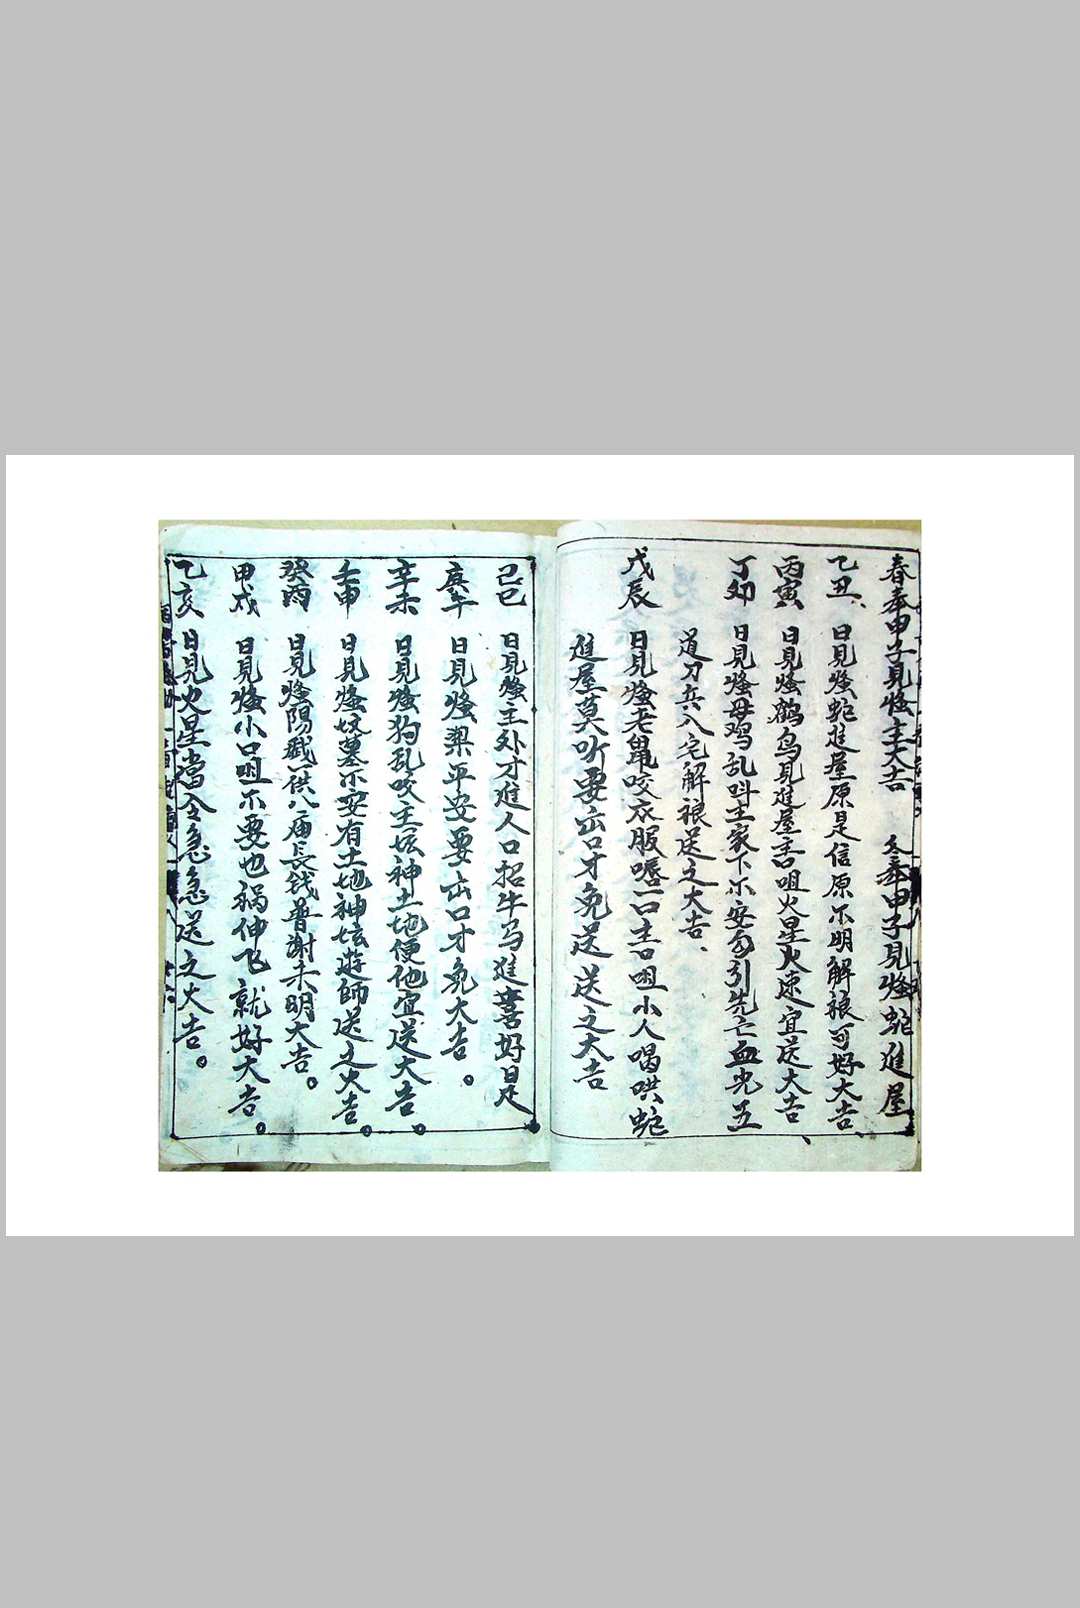 春奉甲子見怪主大吉 冬奉甲子見怪蛇進屋
乙丑 日見怪蛇進屋原是信原不明解禳可好大吉
丙寅 日見怪鶴鳥見進屋主口咀火星火速宜送大吉
丁卯 日見怪母鸡乱叫主家下不安勾引先亡血光五
道刀兵入宅解禳送之大吉
戊辰 日見怪老鼠咬衣服 一口主口咀小人喝哄蛇
進屋莫听要出口才免送送之大吉
己巳 日見怪主外才進人口招牛马進 喜好日足
庚午 日見怪梨平安要出口才免大吉。
辛未 日見怪狗乱咬主坛神土地便他宜送大吉。
壬申 日見怪坟墓不安有土地神坛遊師送之大吉。
癸酉 日見怪陽 一供八庙長钱普謝未明大吉。
甲戌 日見怪小口咀不要也祸伸飞就好大吉。
乙亥 日見火星當令急急送之大吉。